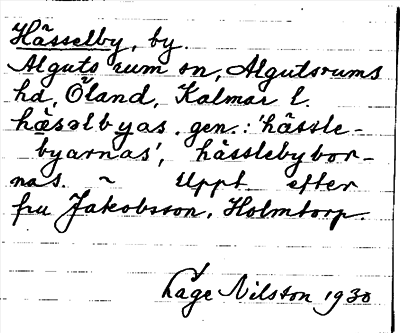 Hässelby, by.
Algutsrum sn, Algutsrums
hd, Öland, Kalmar l.
hæsəlbyas, gen.: 'hässle-
byarnas', hässlebybor-
nas. ~ Uppt. efter
fru Jakobsson, Holmtorp.
Lage Nilston 1930